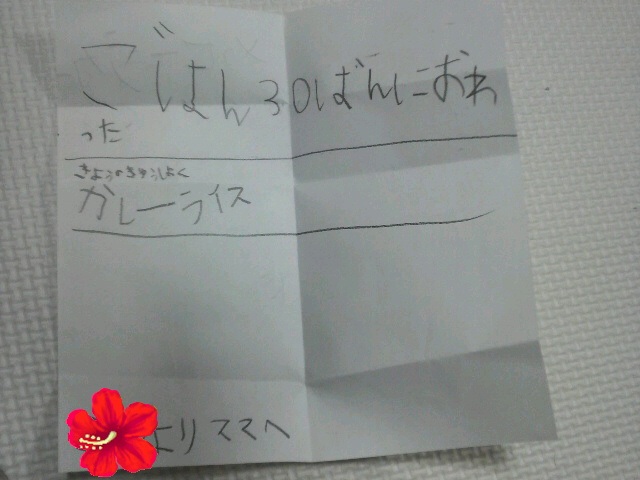 ごはん30ばんにおわ
った
きょうのきゅうしょく
カレーライス
よりママへ